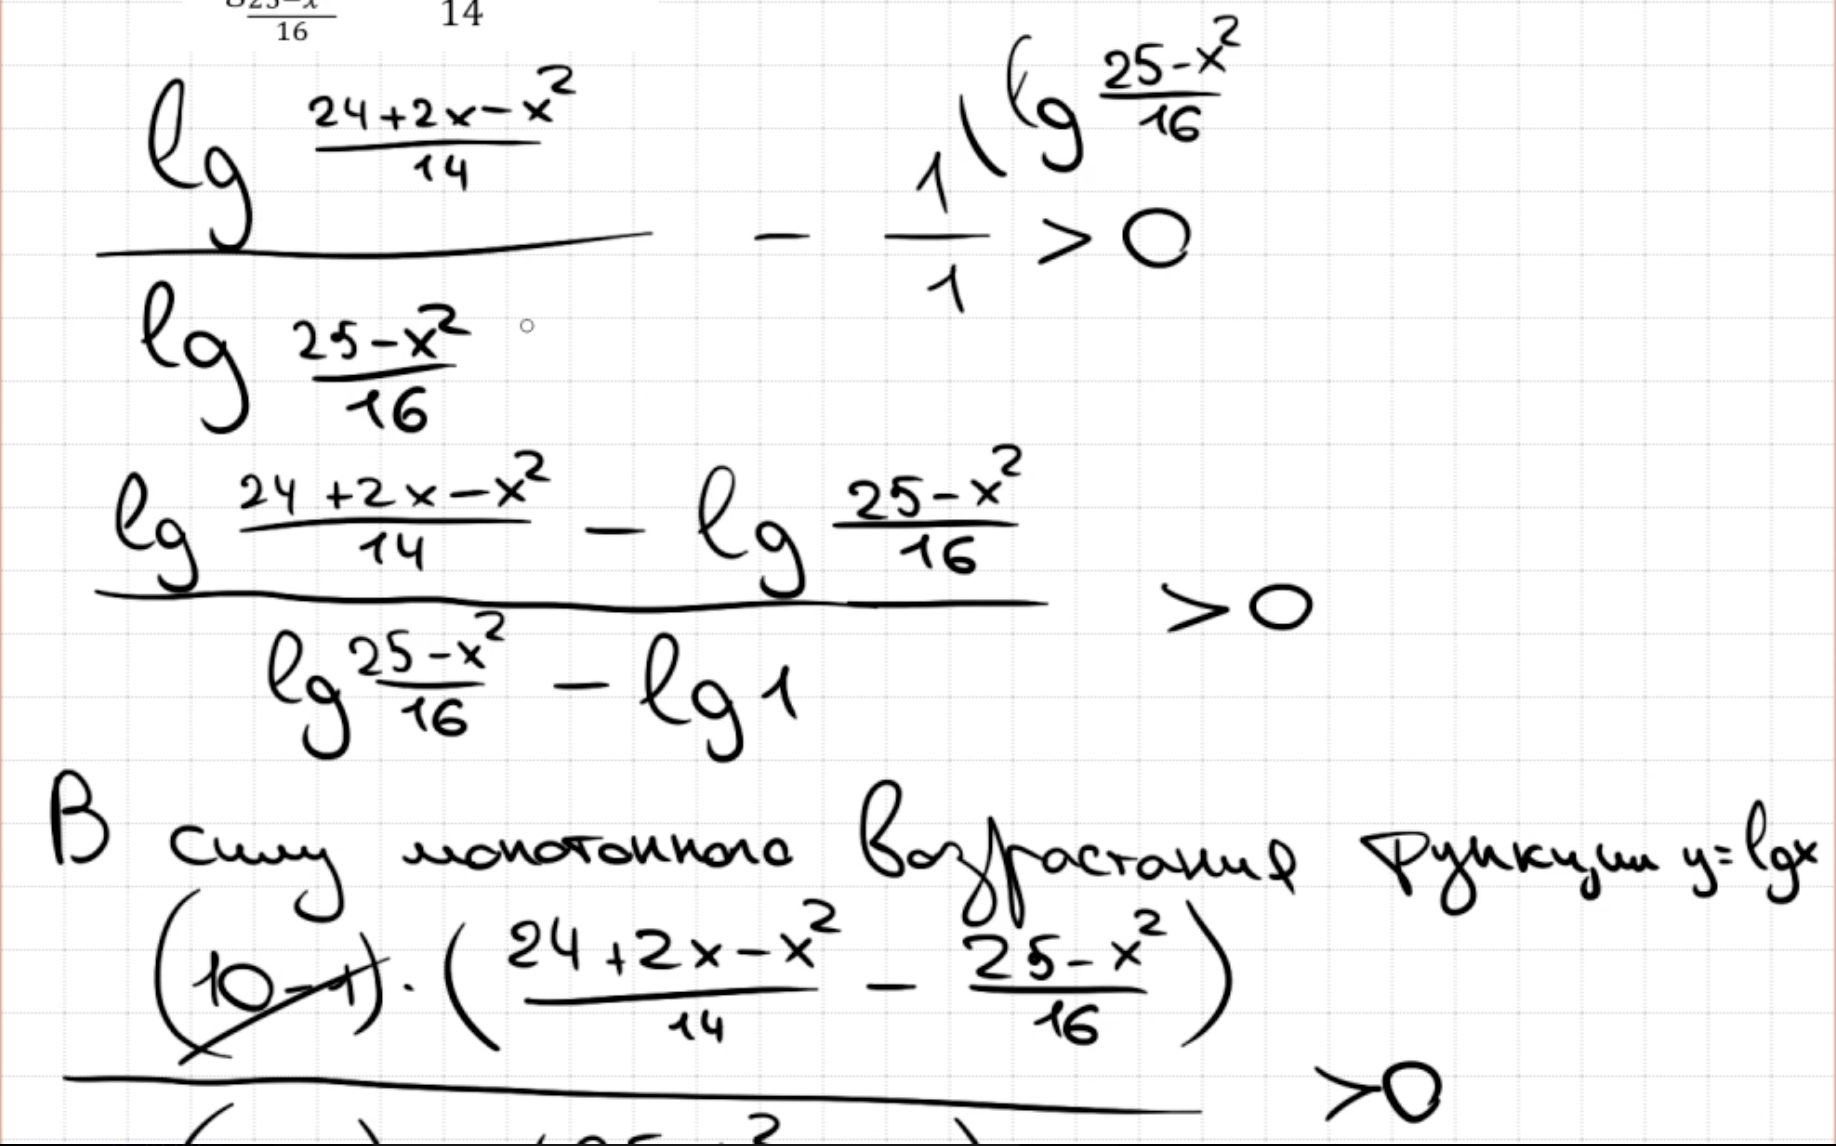 16 14
lg (24+2x-x²)/14 / lg (25-x²)/16 - 1/1 \ lg (25-x²)/16 > 0
(lg (24+2x-x²)/14 - lg (25-x²)/16) / (lg (25-x²)/16 - lg 1) > 0
В силу монотонного возрастания функции y=lgx
(10-1)·((24+2x-x²)/14 - (25-x²)/16) / > 0